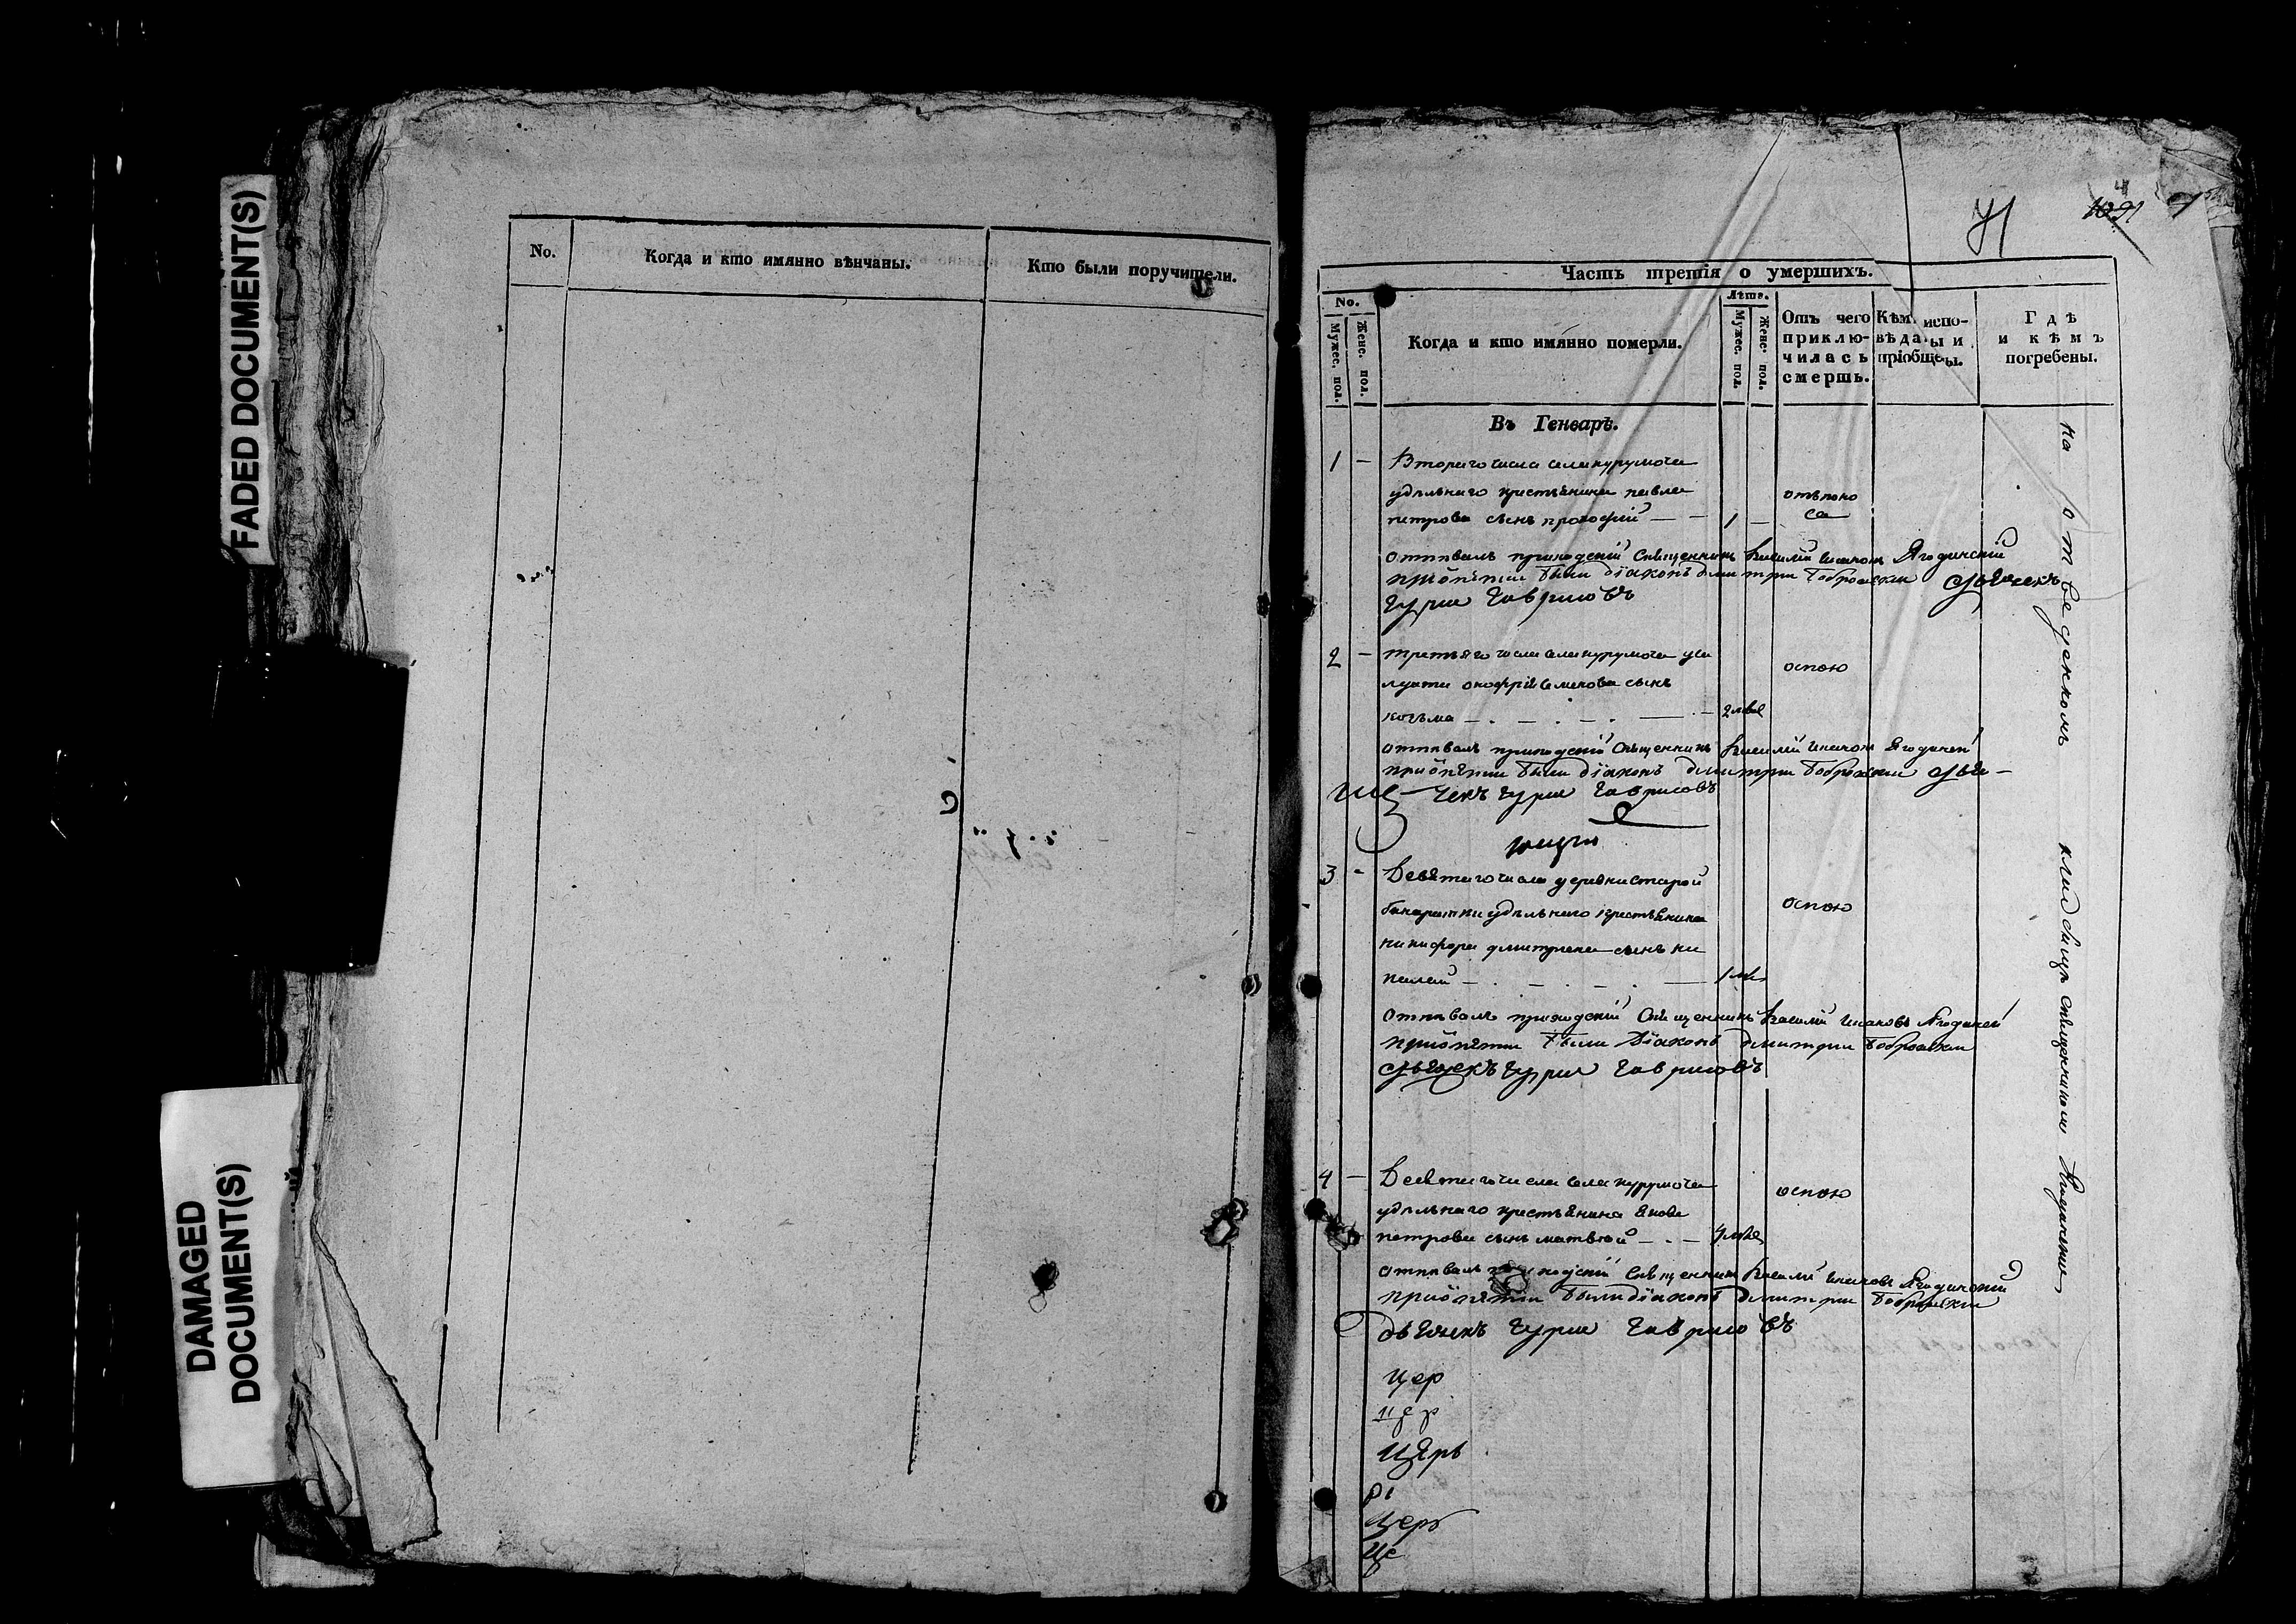 FADED DOCUMENT(S)
DAMAGED
DOCUMENT(S)
No.
Когда и кто имянно вѣнчаны.
Кто были поручители.
71
Часть третія о умершихъ.
No.
Мужес. пол.
Женс. пол.
Когда и кто имянно померли.
Лѣта.
Мужес. пол.
Женс. пол.
Отъ чего
приклю-
чилась
смерть.
Кѣм испо-
вѣданы и
пріобщены.
Гдѣ
и кѣмъ
погребены.
Въ Генварѣ.
1 - Втораго числа села курумоча
удѣльнаго крестьянина павла
петрова сынъ прокофій — — 1 —
отпѣвалъ приходскій священникъ Василій Ивановъ Ягодинскій
при опѣтіи были діаконъ дмитри Бобровски дьячекъ
гурие Гаврисовъ
2 - третьяго числа села курумоча
сынъ
козьма — 2
оспою
отпѣвалъ приходскій священникъ Василій Ивановъ
при опѣтіи были діаконъ дмитри Бобровски дья-
чекъ гурие Гаврисовъ
3 - Девятаго числа деревни старой
удѣльнаго крестьянина
никифора дмитриева сынъ
1
оспою
отпѣвалъ приходскій священникъ Василій Ивановъ
при опѣтіи были діаконъ дмитри Бобровски
дьячекъ гурие Гаврисовъ
4 - Девятаго числа села курумоча
удѣльнаго крестьянина якова
петрова сынъ матвѣй — 4
оспою
отпѣвалъ приходскій священникъ Василій Ивановъ Ягодинскій
при опѣтіи были діаконъ дмитри Бобровски
дьячекъ гурие Гаврисовъ
цер
цер
церь
Церь
Це
на отведенномъ кладбищѣ священникомъ